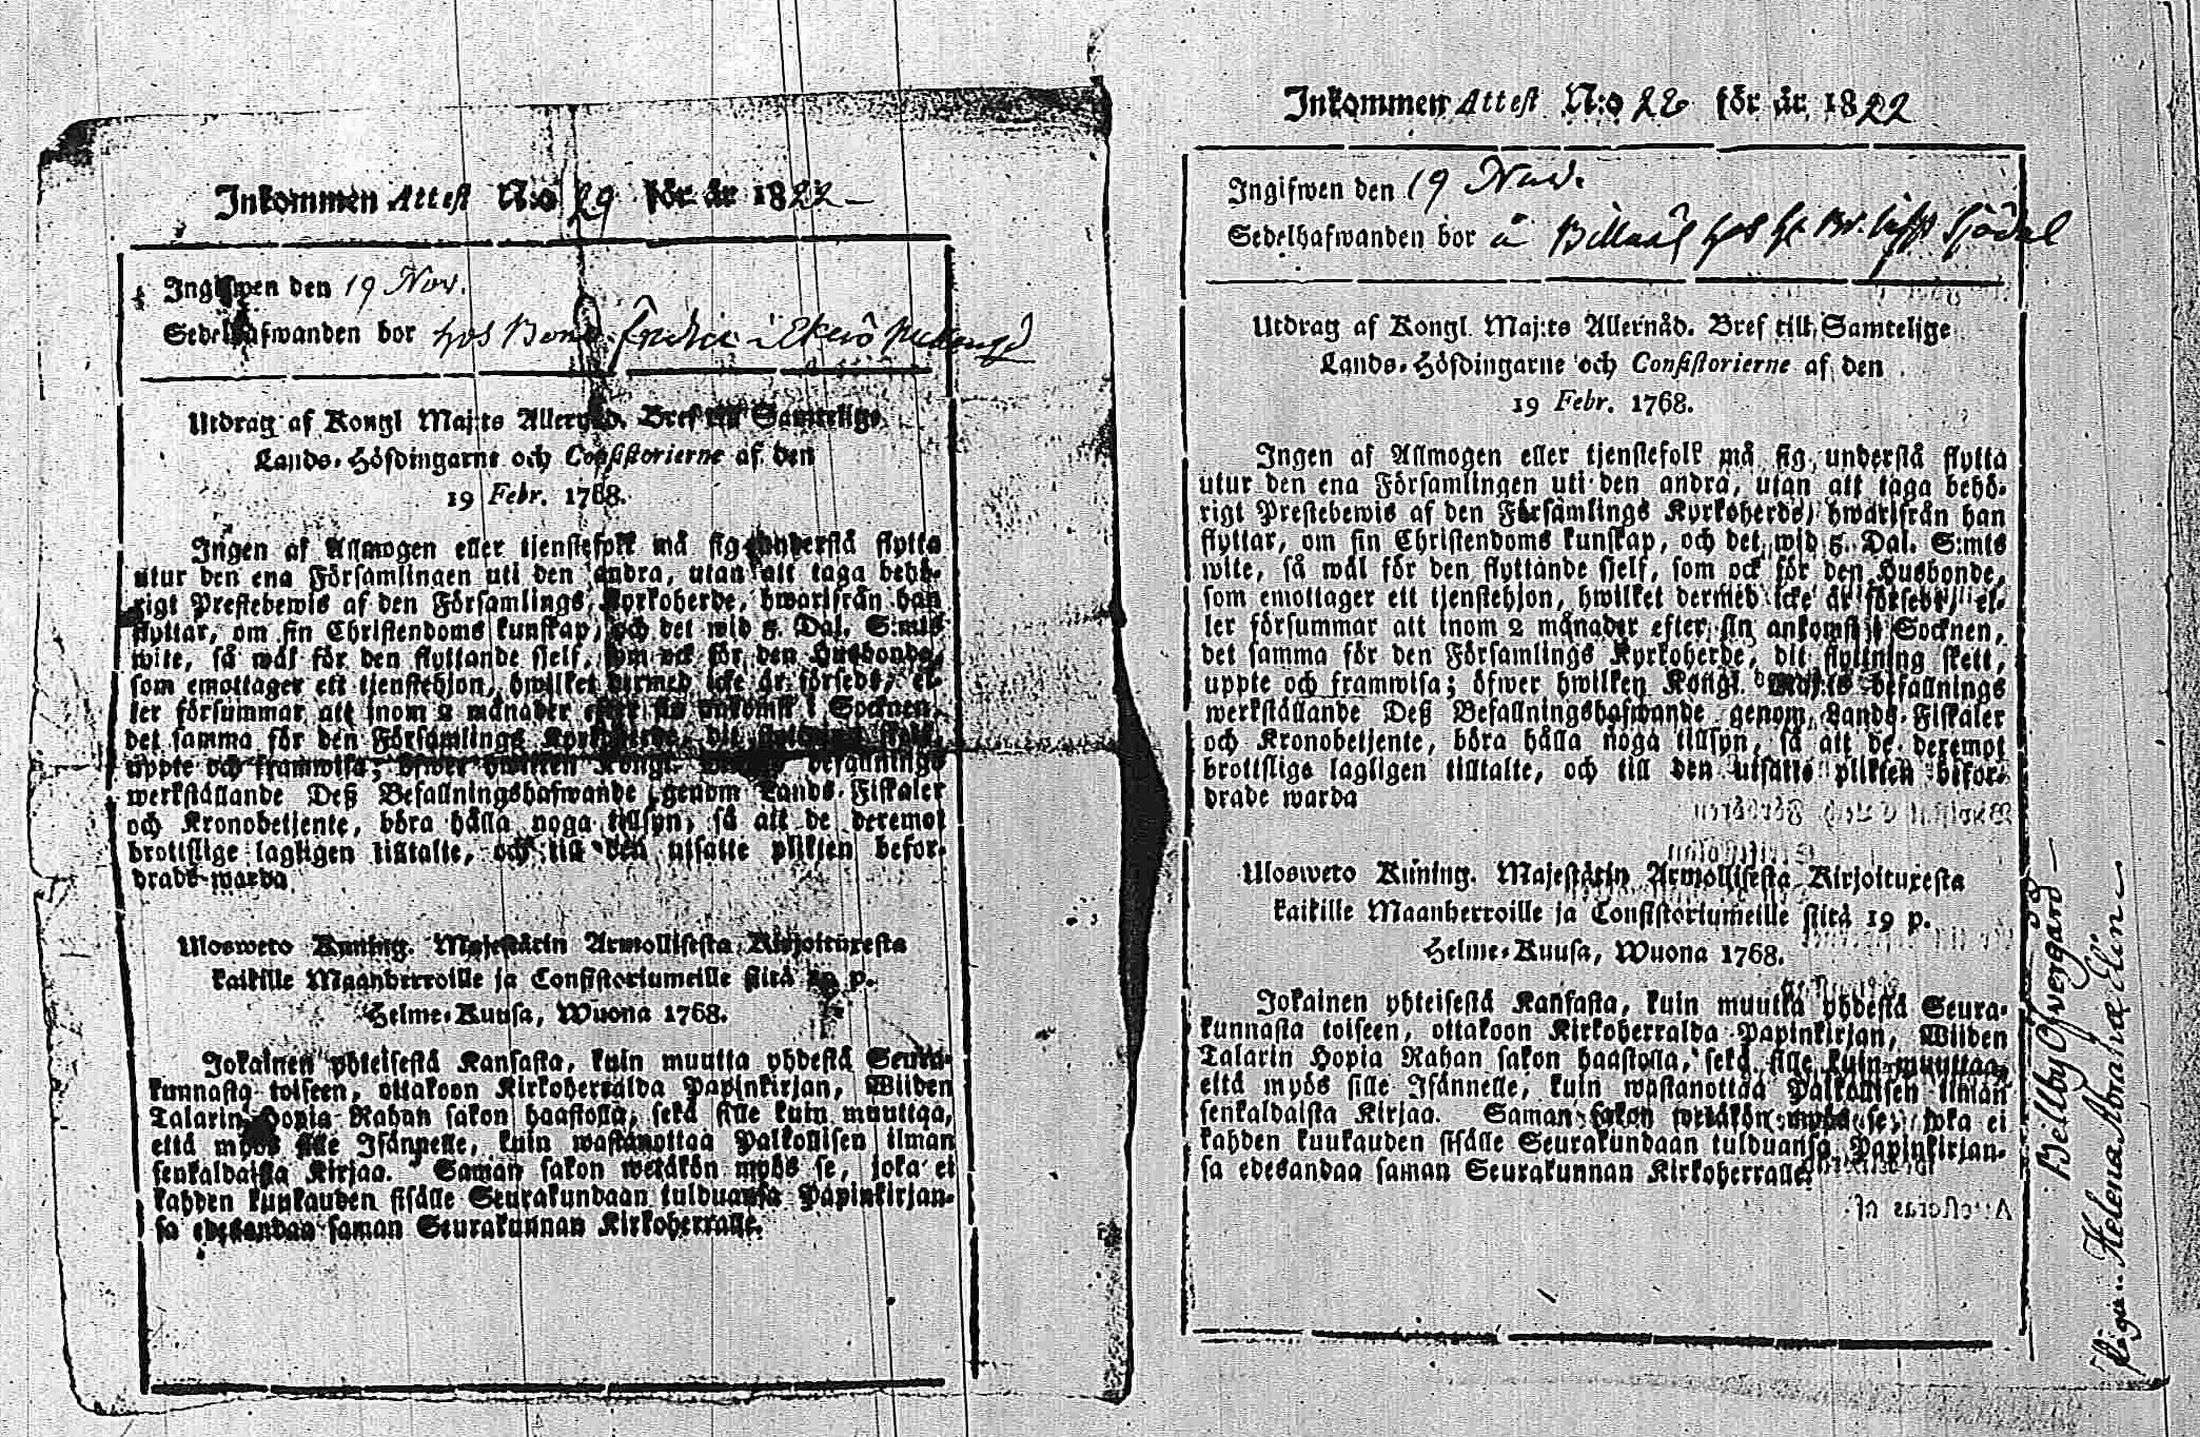 Inkommen Attest N:o 29 för år 1822
Ingifwen den 19 Nov.
Sedelhafwanden bor hos
Utdrag af Kongl Maj:ts Allernåd. Bref till Samtelige
Lands-Höfdingarne och Consistorierne af den
19 Febr. 1768.
Ingen af Allmogen eller tjenstefolk må sig understå flytta
utur den ena Församlingen uti den andra, utan att taga behö-
rigt Prestebewis af den Församlings Kyrkoherde, hwarifrån han
flyttar, om sin Christendoms kunskap, och det wid 5. Dal. S:mts
wite, så wäl för den flyttande sjelf, som ock för den Husbonde,
som emottager ett tjenstehjon, hwilket dermed icke är försedt, el-
ler försummar att inom 2 månader efter sin ankomst i Socknen,
det samma för den Församlings Kyrkoherde, dit flyttning skett,
uppte och framwisa; öfwer hwilken Kongl. Maj:ts befallnings
werkställande Deß Befallningshafwande genom Lands-Fiskaler
och Kronobetjente, böra hålla noga tillsyn, så att de deremot
brottslige lagligen tilltalte, och till den utsatte plikten befor-
drade warda
Ulosweto Kuning. Majestätin Armollisesta Kirjoituxesta
kaikille Maanherroille ja Consistoriumeille siitä 19 p.
Helme-Kuusa, Wuona 1768.
Jokainen yhteisestä Kansasta, kuin muutta yhdestä Seura-
kunnasta toiseen, ottakoon Kirkoherralda Papinkirjan, Wiiden
Talarin Hopia Rahan sakon haastolla, sekä sille kuin muuttaa,
että myös sille Isännelle, kuin wastanottaa Palkollisen ilman
senkaldaista Kirjaa. Saman sakon wetäkön myös se, joka ei
kahden kuukauden sisälle Seurakundaan tulduansa Papinkirjan-
sa edesandaa saman Seurakunnan Kirkoherralle.
Inkommen Attest N:o 26 för år 1822
Ingifwen den 19 Nov.
Sedelhafwanden bor å
Utdrag af Kongl. Maj:ts Allernåd. Bref till Samtelige
Lands-Höfdingarne och Consistorierne af den
19 Febr. 1768.
Ingen af Allmogen eller tjenstefolk må sig understå flytta
utur den ena Församlingen uti den andra, utan att taga behö-
rigt Prestebewis af den Församlings Kyrkoherde, hwarifrån han
flyttar, om sin Christendoms kunskap, och det wid 5. Dal. S:mts
wite, så wäl för den flyttande sjelf, som ock för den Husbonde,
som emottager ett tjenstehjon, hwilket dermed icke är försedt, el-
ler försummar att inom 2 månader efter sin ankomst i Socknen,
det samma för den Församlings Kyrkoherde, dit flyttning skett,
uppte och framwisa; öfwer hwilken Kongl. Maj:ts befallnings
werkställande Deß Befallningshafwande genom Lands-Fiskaler
och Kronobetjente, böra hålla noga tillsyn, så att de deremot
brottslige lagligen tilltalte, och till den utsatte plikten befor-
drade warda
Ulosweto Kuning. Majestätin Armollisesta Kirjoituxesta
kaikille Maanherroille ja Consistoriumeille siitä 19 p.
Helme-Kuusa, Wuona 1768.
Jokainen yhteisestä Kansasta, kuin muutta yhdestä Seura-
kunnasta toiseen, ottakoon Kirkoherralda Papinkirjan, Wiiden
Talarin Hopia Rahan sakon haastolla, sekä sille kuin muuttaa,
että myös sille Isännelle, kuin wastanottaa Palkollisen ilman
senkaldaista Kirjaa. Saman sakon wetäkön myös se, joka ei
kahden kuukauden sisälle Seurakundaan tulduansa Papinkirjan-
sa edesandaa saman Seurakunnan Kirkoherralle.
Beillby Öfvergård
Pigan Helena Abrah Elin